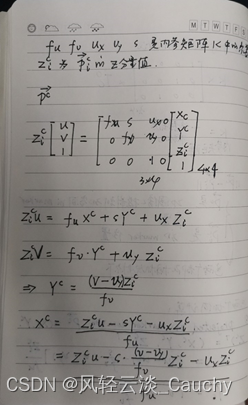 fu fv ux uy s 是内参矩阵K中的
Zᵢᶜ 为 Pᵢᶜ in z分量值.
Pᶜ
Zᵢᶜ [u v 1] = [fu s ux 0; 0 fv uy 0; 0 0 1 0] [Xᶜ Yᶜ Zᵢᶜ 1]
3×4
4×4
Zᵢᶜu = fu Xᶜ + sYᶜ + ux Zᵢᶜ
ZᵢᶜV = fv · Yᶜ + uy Zᵢᶜ
⇒ Yᶜ = (v-uy)Zᵢᶜ / fv
Xᶜ = Zᵢᶜu - sYᶜ - uxZᵢᶜ / fu
= Zᵢᶜu - s · (v-uy)/fv Zᵢᶜ - uxZᵢᶜ / fu
CSDN @风轻云淡_Cauchy